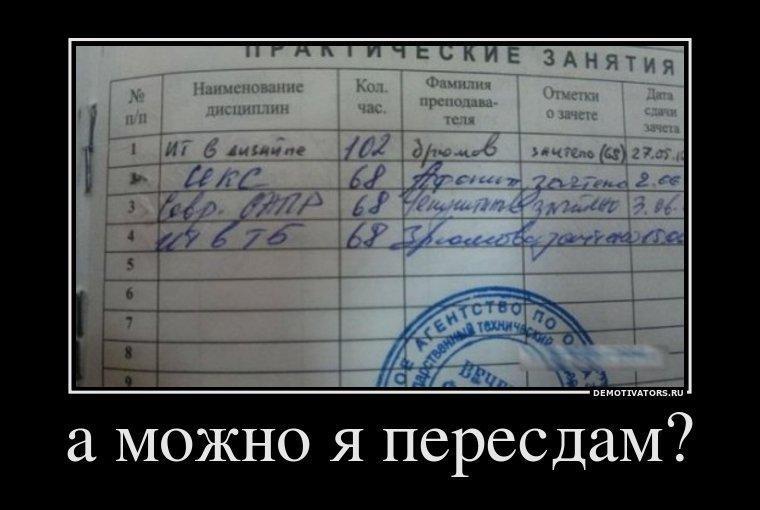 ПРАКТИЧЕСКИЕ ЗАНЯТИЯ
№ п/п
Наименование дисциплин
Кол. час.
Фамилия преподава- теля
Отметки о зачете
Дата сдачи зачета
1 ИТ в дизайне 102 зачтено (68) 27.05.
2 СЕКС 68 зачтено 2.06
3 Совр. САПР 68 зачтено 3.06.
4 68 зачтено
5
6
7
8
9
АГЕНТСТВО ПО О
ТЕХНИЧЕСКИЙ
ВЕЧЕ
DEMOTIVATORS.RU
а можно я пересдам?